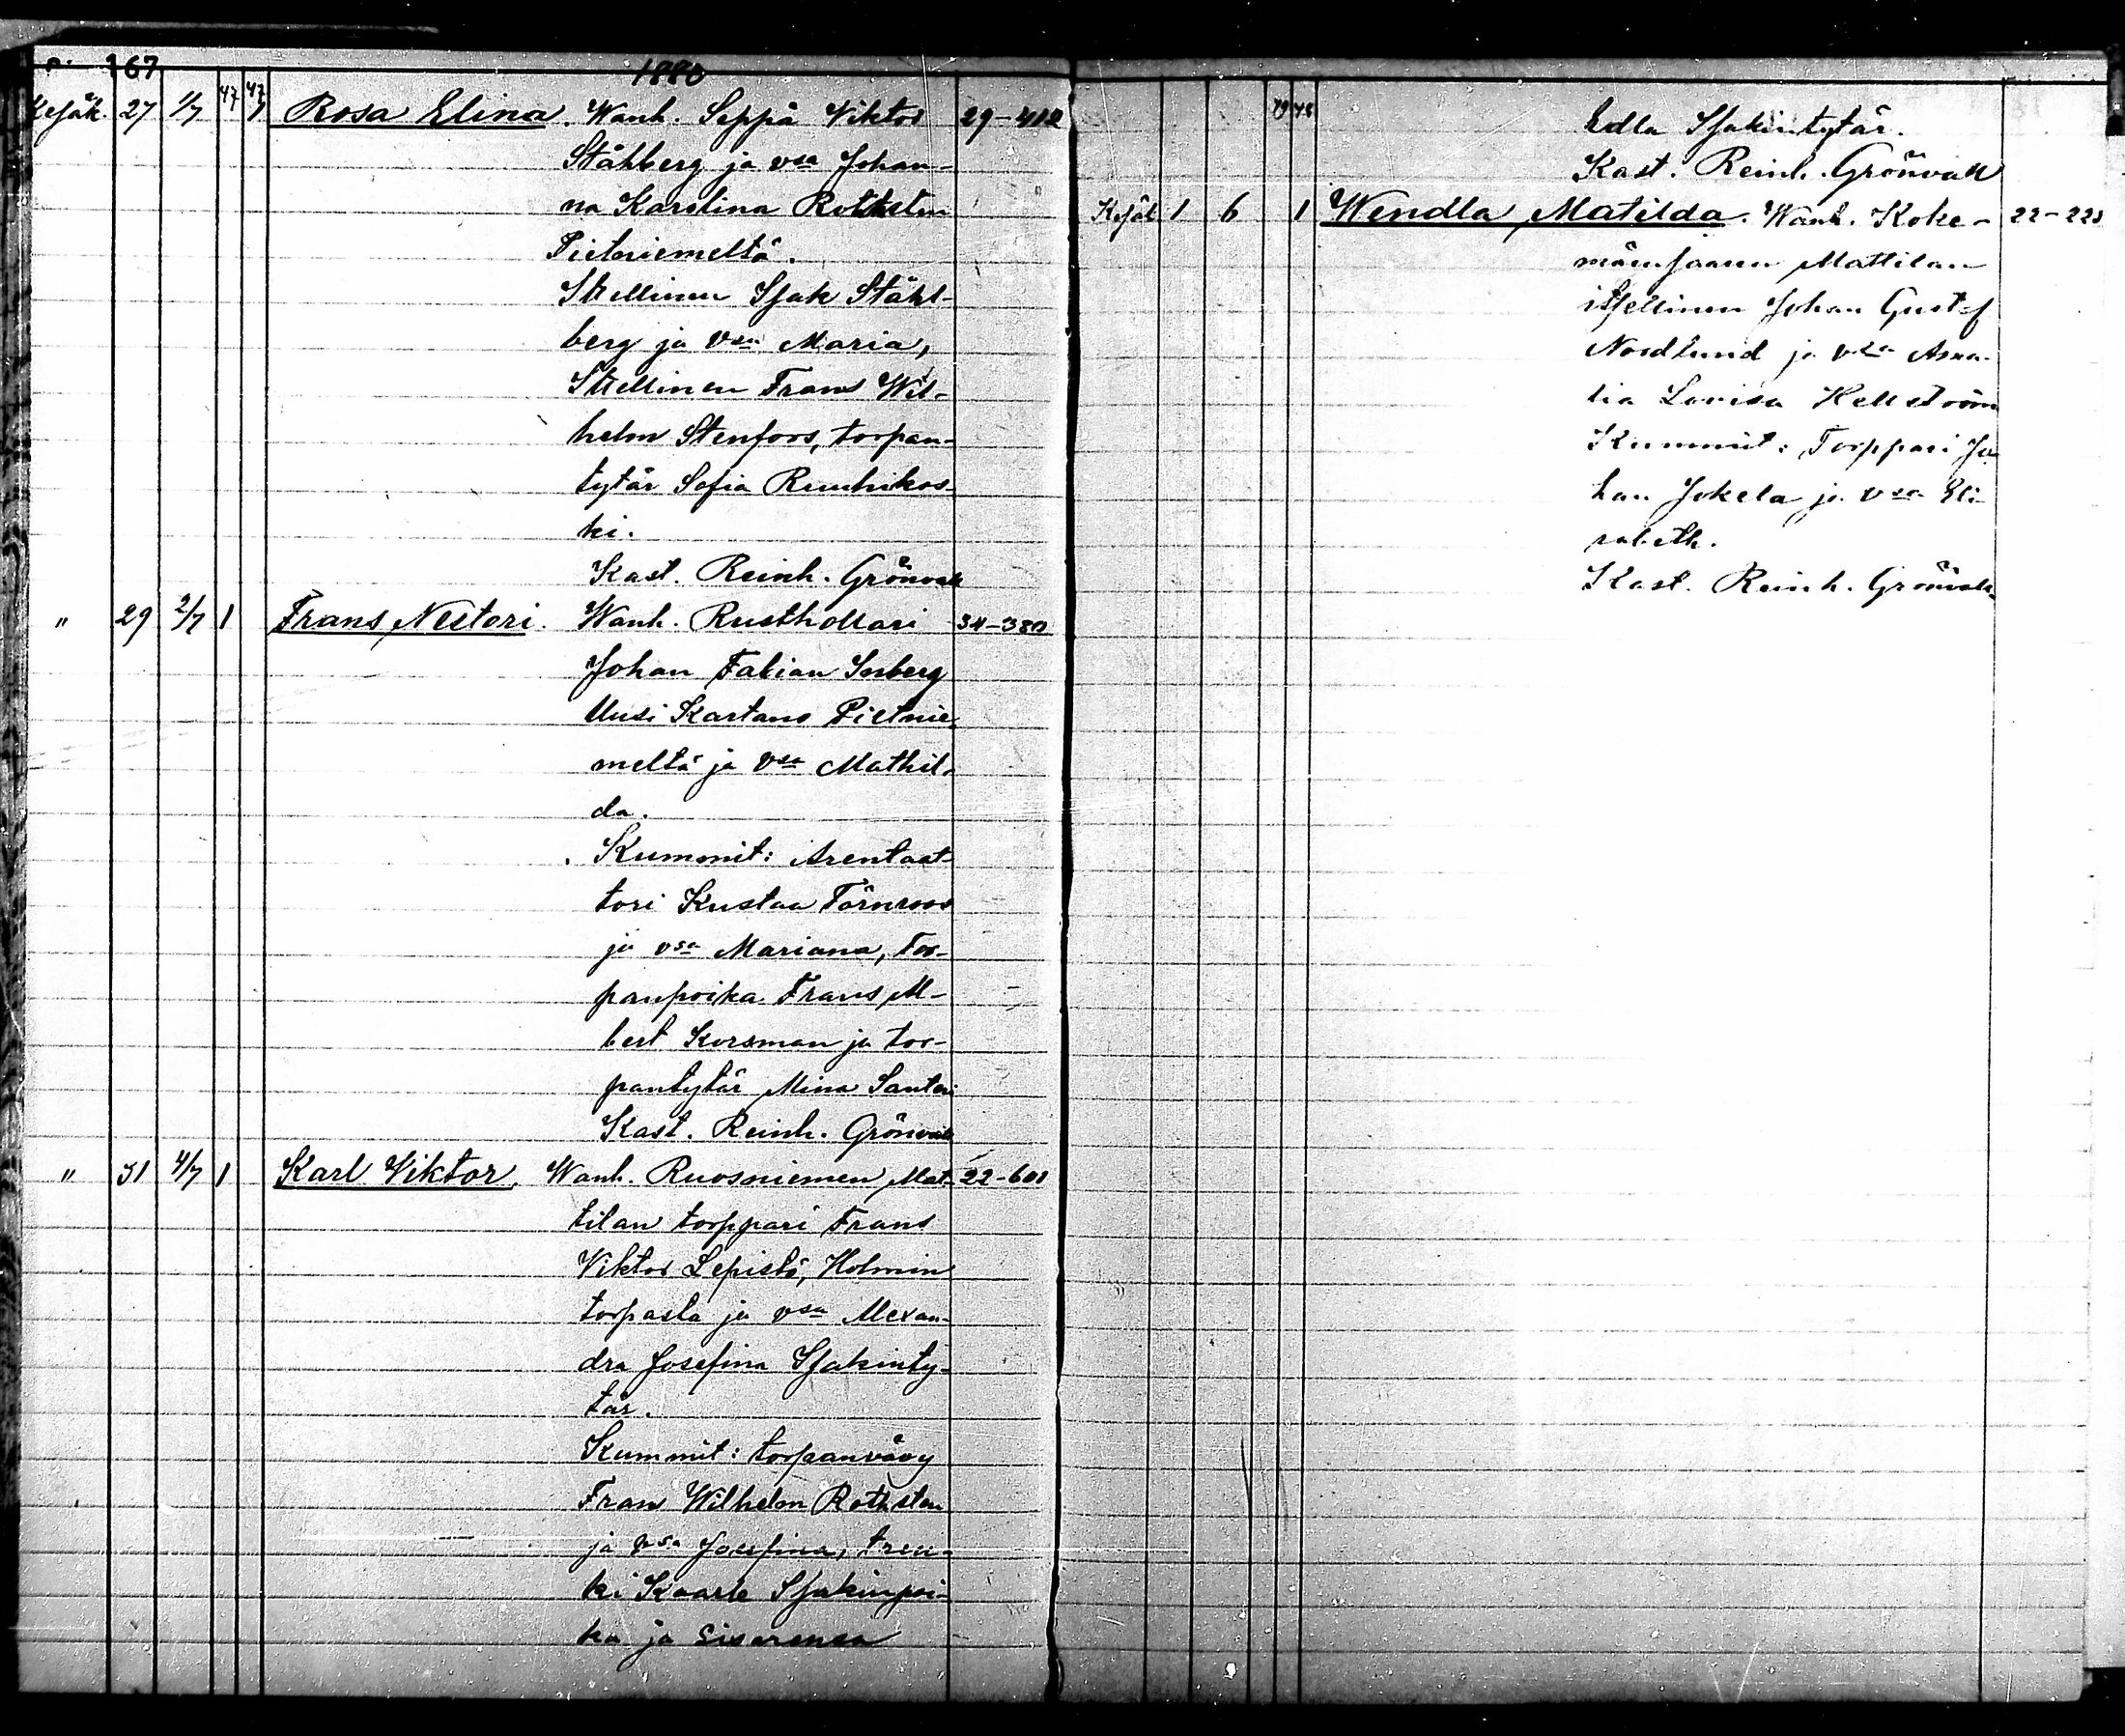 167 1880
Kesäk. 27 1/7 47 47 1 Rosa Elina. Wanh. Seppä Viktor 29-412
Ståhlberg ja vsa Johan-
na Karolina Rothsten
Pietniemeltä.
Itsellinen Isak Ståhl-
berg ja vsa Maria,
Itsellinen Frans Wil-
helm Stenfors, torpan-
tytär Sofia Ruuhikos-
ki.
Kast. Reinh. Grönvall
" 29 2/7 1 Frans Nestori. Wanh. Rusthollari 34-380
Johan Fabian Inberg
Uusi Kartano Pietnie-
meltä ja vsa Mathil-
da.
Kummit: Arentaat-
tori Kustaa Törnroos
ja vsa Mariana, Tor-
panpoika Frans Al-
bert Korsman ja tor-
pantytär Mina Santeri
Kast. Reinh. Grönvall
" 31 4/7 1 Karl Viktor. Wanh. Ruosniemen Mat- 22-601
tilan torppari Frans
Viktor Lepistö, Holmin
torpasta ja vsa Alexan-
dra Josefina Isakinty-
tär.
Kummit: torpanvävy
Frans Wilhelm Rothsten
ja vsa Josefina, tren-
ki Kaarle Isakinpoi-
ka ja sisarensa
79 48
Edla Isakintytär.
Kast. Reinh. Grönvall
Kesäk 1 6 1 Wendla Matilda. Wanh. Koke- 22-223
mäensaaren Mattilan
itsellinen Johan Gustaf
Nordlund ja vsa Ama-
lia Lovisa Hellström
Kummit: Torppari Jo-
han Jokela ja vsa Eli-
sabeth.
Kast. Reinh. Grönvall